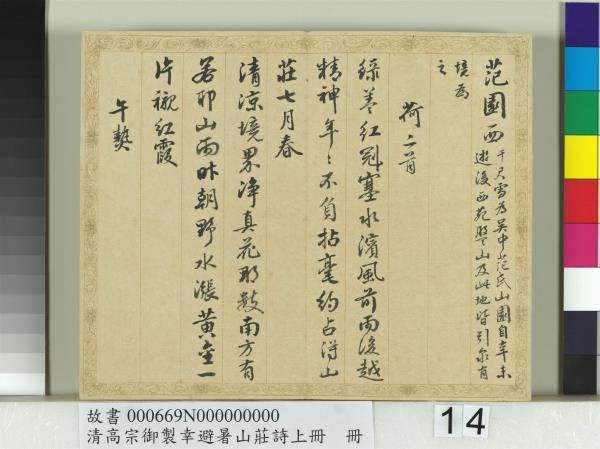 范園西
千尺雪為吳中范氏山園自辛未
遊後西苑盤山及此地皆引泉肖
境為
之
荷二首
綠蓋紅冠塞水濱風前雨後越
精神年々不負拈毫約占得山
莊七月春
清涼境界淨真花那數南方有
若耶山雨昨朝野水漲黃金一
片襯紅霞
午熱
故書 000669N000000000
清高宗御製幸避暑山莊詩上冊 冊
14